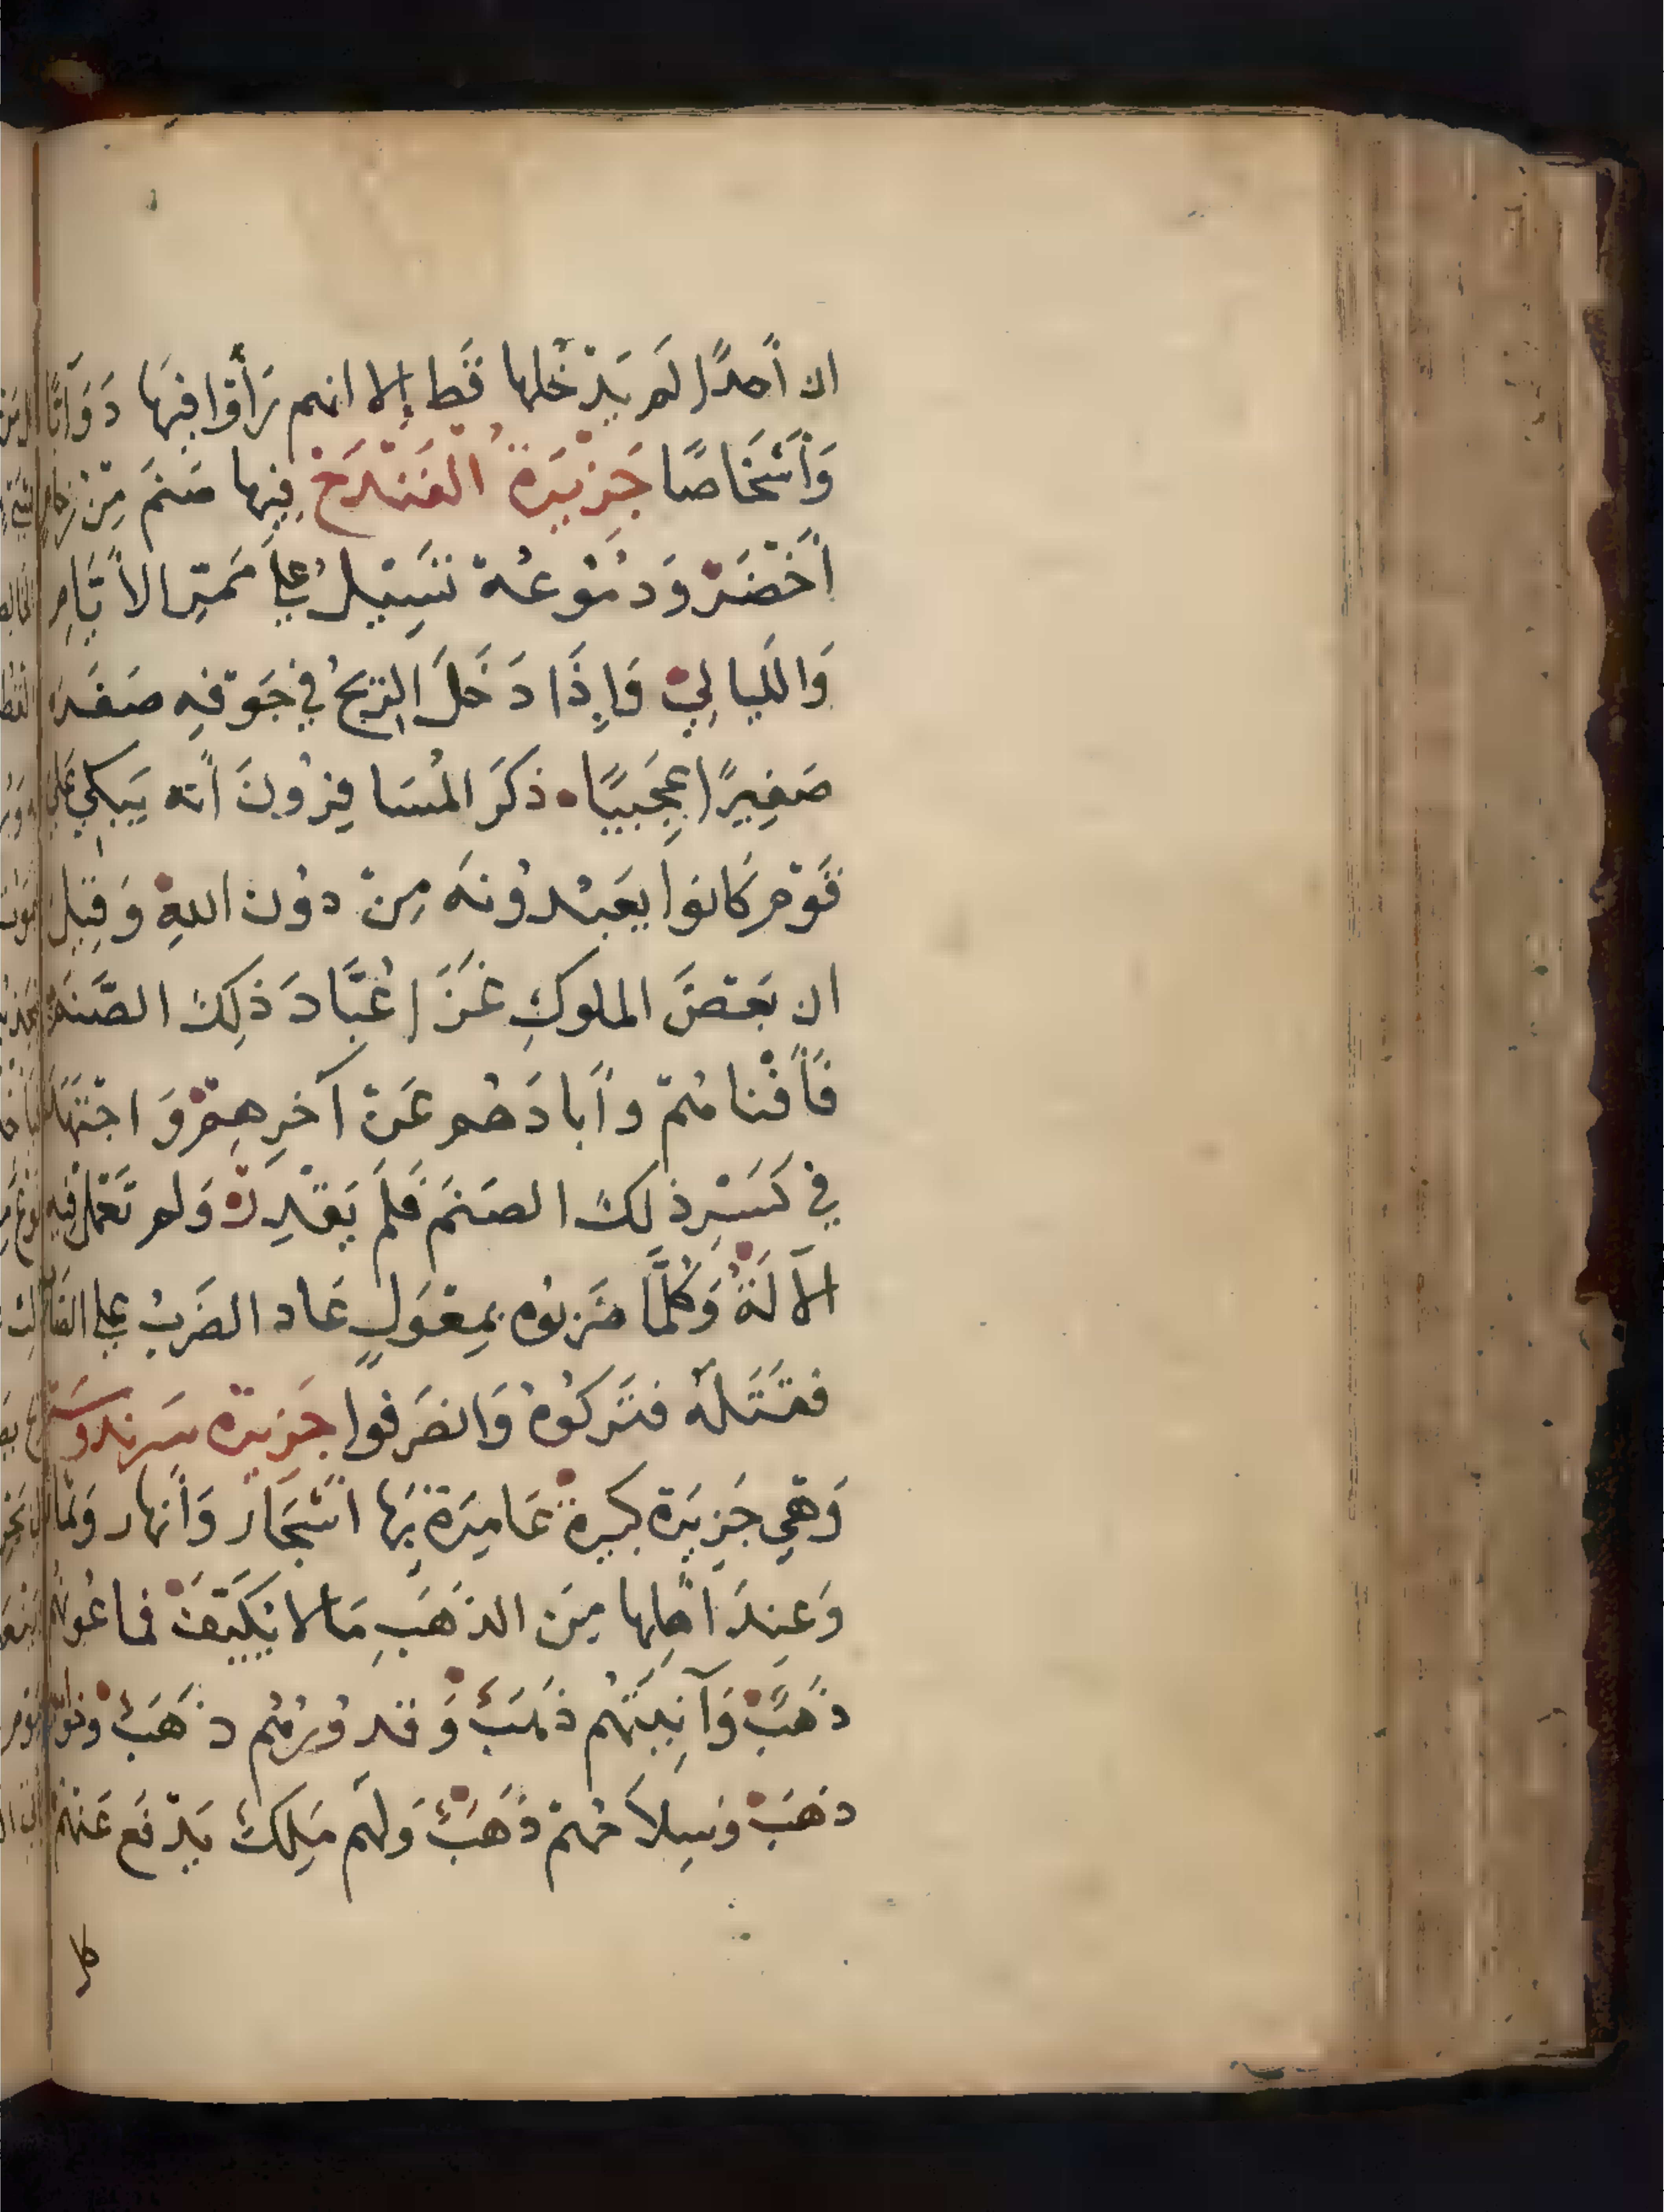 ان أَحدًا لَم يَدْخُلها قَط إلا انهم رَأَوْا فِيهَا دَوَابًّا
وَأَشْخَاصًا جَزِيْرَةُ الْفَنْدَخْ فِيها صَنَم مِنْ زجاج
أَخْضَرْ وَدُمُوْعُهْ تَسِيْلُ عَلَى مَمَرِّ الأَيَّامِ
وَاللَّيالِيْ فَإِذَا دَخَلَ الرِّيحُ فِي جَوْفِهِ صَفَرَ
صَفِيرًا عَجِيبًا ٥ ذَكَرَ الْمُسَافِرُونَ أَنه يَبكِي عَلَى
قَوْم كَانوا يعَبْدُونَه مِنْ دوُن اللهِ وَقِيْلَ
ان بَعْضَ الملوكِ غَزَا عُبَّادَ ذَلِكَ الصَّنَم
فَأَفْنَاهُمْ وأَبادَهُم عَنْ آخِرِهِمْ وَاجْتَهَدَ
فِي كَسْرِ ذلِكَ الصَنَم فَلَم يَقْدِرْ وَلم تَعْمَل فِيه
الآلَةُ وَكُلَّمَا ضَرَبوُه بِمِعْوَلٍ عَاد الضَرْبُ عَلى الضَّارب
فقَتَلَهُ فتَركُوهُ وَانصَرَفوا جَزِيرَة سَرندوسَة
وَهِيَ جَزِيْرَة كبيرةْ عَامِرَةْ بِهَا اَشْجَار وَأَنهار وَثمار
وَعِندَ اهلِها مِن الذَهَبِ مَالا يُكَيَّفْ فماعُونهم
ذَهَبْ وَآنِيَتُهُم ذَهَبْ وَقدورُهُم ذَهَبْ وخوابيهم
ذهَبْ وَسِلاَحُهمْ ذَهَبْ وَلَهم مَلِكْ يَدْفَع عَنْهُمْ
كل